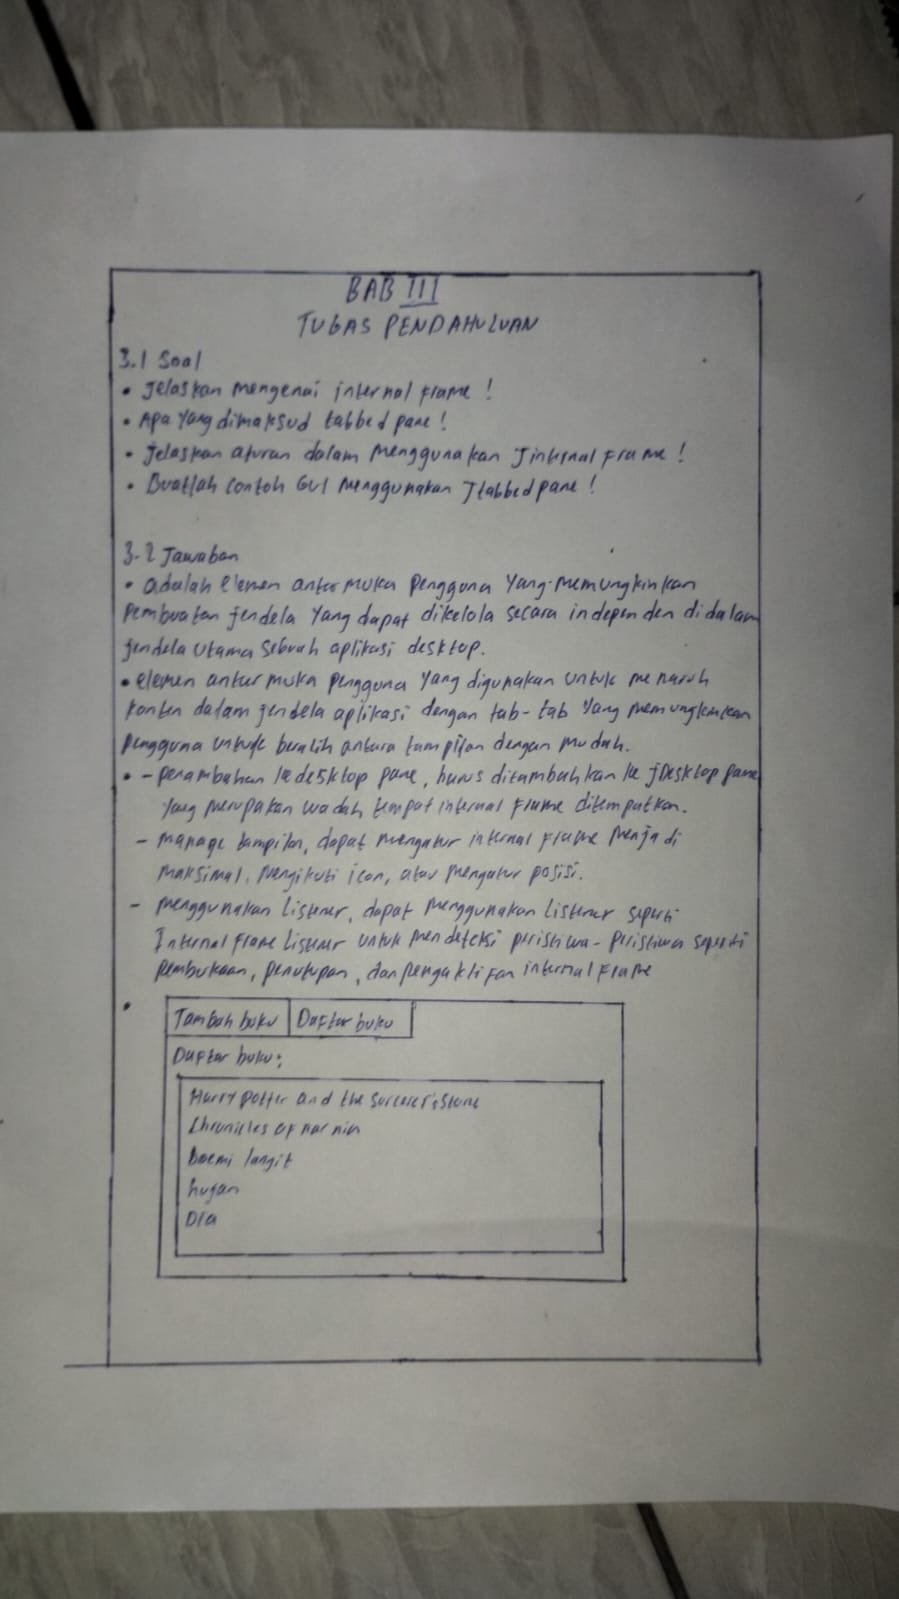 BAB III
TUGAS PENDAHULUAN
3.1 Soal
• Jelaskan mengenai internal frame !
• Apa yang dimaksud tabbed pane !
• Jelaskan aturan dalam menggunakan Jinternal frame !
• Buatlah contoh GUI menggunakan Jtabbed pane !
3.2 Jawaban
• adalah elemen antar muka pengguna yang memungkinkan
pembuatan jendela yang dapat dikelola secara independen didalam
jendela utama sebuah aplikasi desktop.
• elemen antar muka pengguna yang digunakan untuk menaruh
konten dalam jendela aplikasi dengan tab-tab yang memungkinkan
pengguna untuk beralih antara tampilan dengan mudah.
• - penambahan ke desktop pane, harus ditambahkan ke jDesktop pane
yang merupakan wadah tempat internal frame ditempatkan.
- manage tampilan, dapat mengatur internal frame menjadi
maksimal, mengikuti icon, atau mengatur posisi.
- menggunakan listener, dapat menggunakan listener seperti
Internal frame listener untuk mendeteksi peristiwa-peristiwa seperti
pembukaan, penutupan, dan pengaktifan internal frame
•
Tambah buku Daftar buku
Daftar buku:
Harry potter and the sorcerer's stone
Chronicles of narnia
boemi langit
hujan
Dia